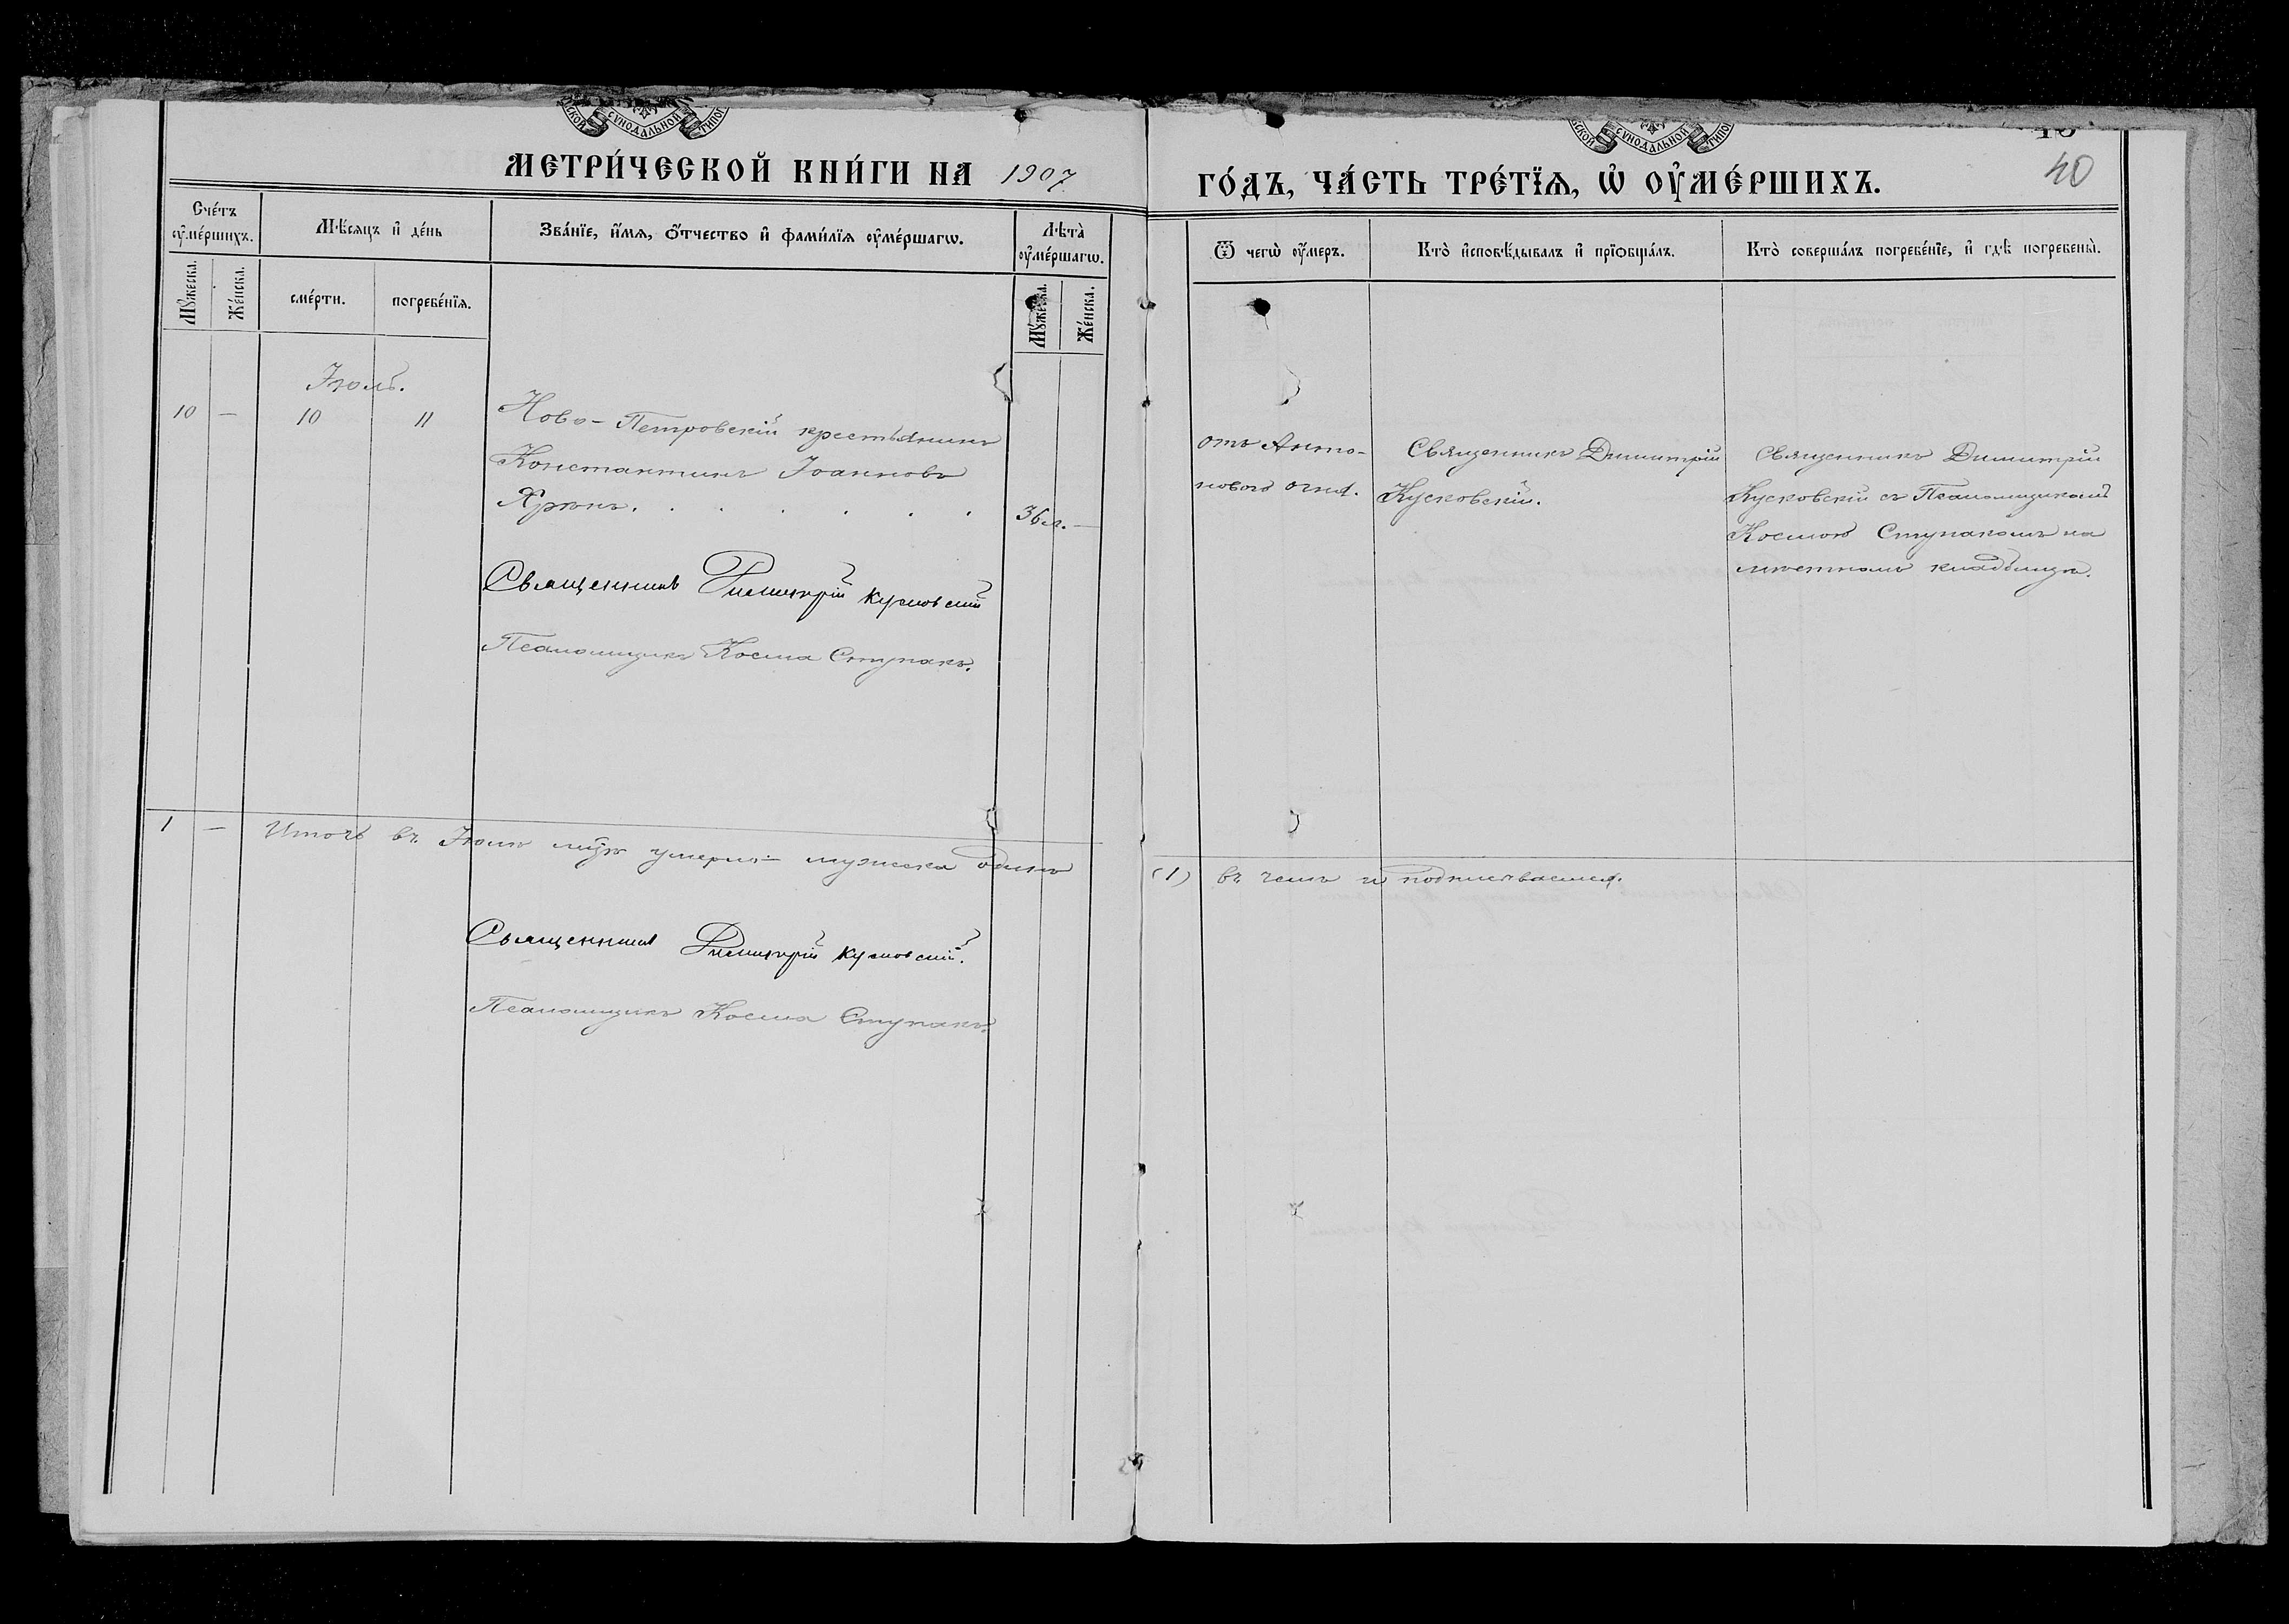 СѴНОДАЛЬНОЙ
СѴНОДАЛЬНОЙ
МЕТРИ́ЧЕСКОЙ КНИ́ГИ НА 1907
ГО́ДЪ, ЧА́СТЬ ТРЕ́ТЇѦ, Ѡ҆ ОУ҆МЕ́РШИХЪ.
40
Сче́тъ оу҆ме́ршихъ.
Мꙋ́жеска.
Же́нска.
Мѣ́сѧцъ и҆ де́нь
сме́рти.
погребе́нїѧ.
Зва́нїе, и҆́мѧ, ѻ҆́тчество и҆ фами́лїѧ оу҆ме́ршагѡ.
Лѣ́та оу҆ме́ршагѡ.
Мꙋ́жеска.
Же́нска.
Ѿ чегѡ̀ оу҆́меръ.
Кто̀ и҆сповѣ́дывалъ и҆ прїѡбща́лъ.
Кто̀ соверша́лъ погребе́нїе, и҆ гдѣ̀ погребены̀.
Іюль.
10 — 10 11
Ново-Петровскій крестьянинъ
Константинъ Іоанновъ
36 л. —
отъ Анто-
нового огня.
Священникъ Димитрій
Кусковскій.
Священникъ Димитрій
Кусковскій съ Псаломщикомъ
Космою Ступакомъ на
мѣстномъ кладбищѣ.
Священникъ Димитрій Кусковскій
Псаломщикъ Косма Ступакъ.
1 — Итого въ Іюлѣ умерло — мужеска одинъ
(1) въ чемъ и подписываемся.
Священникъ Димитрій Кусковскій.
Псаломщикъ Косма Ступакъ.